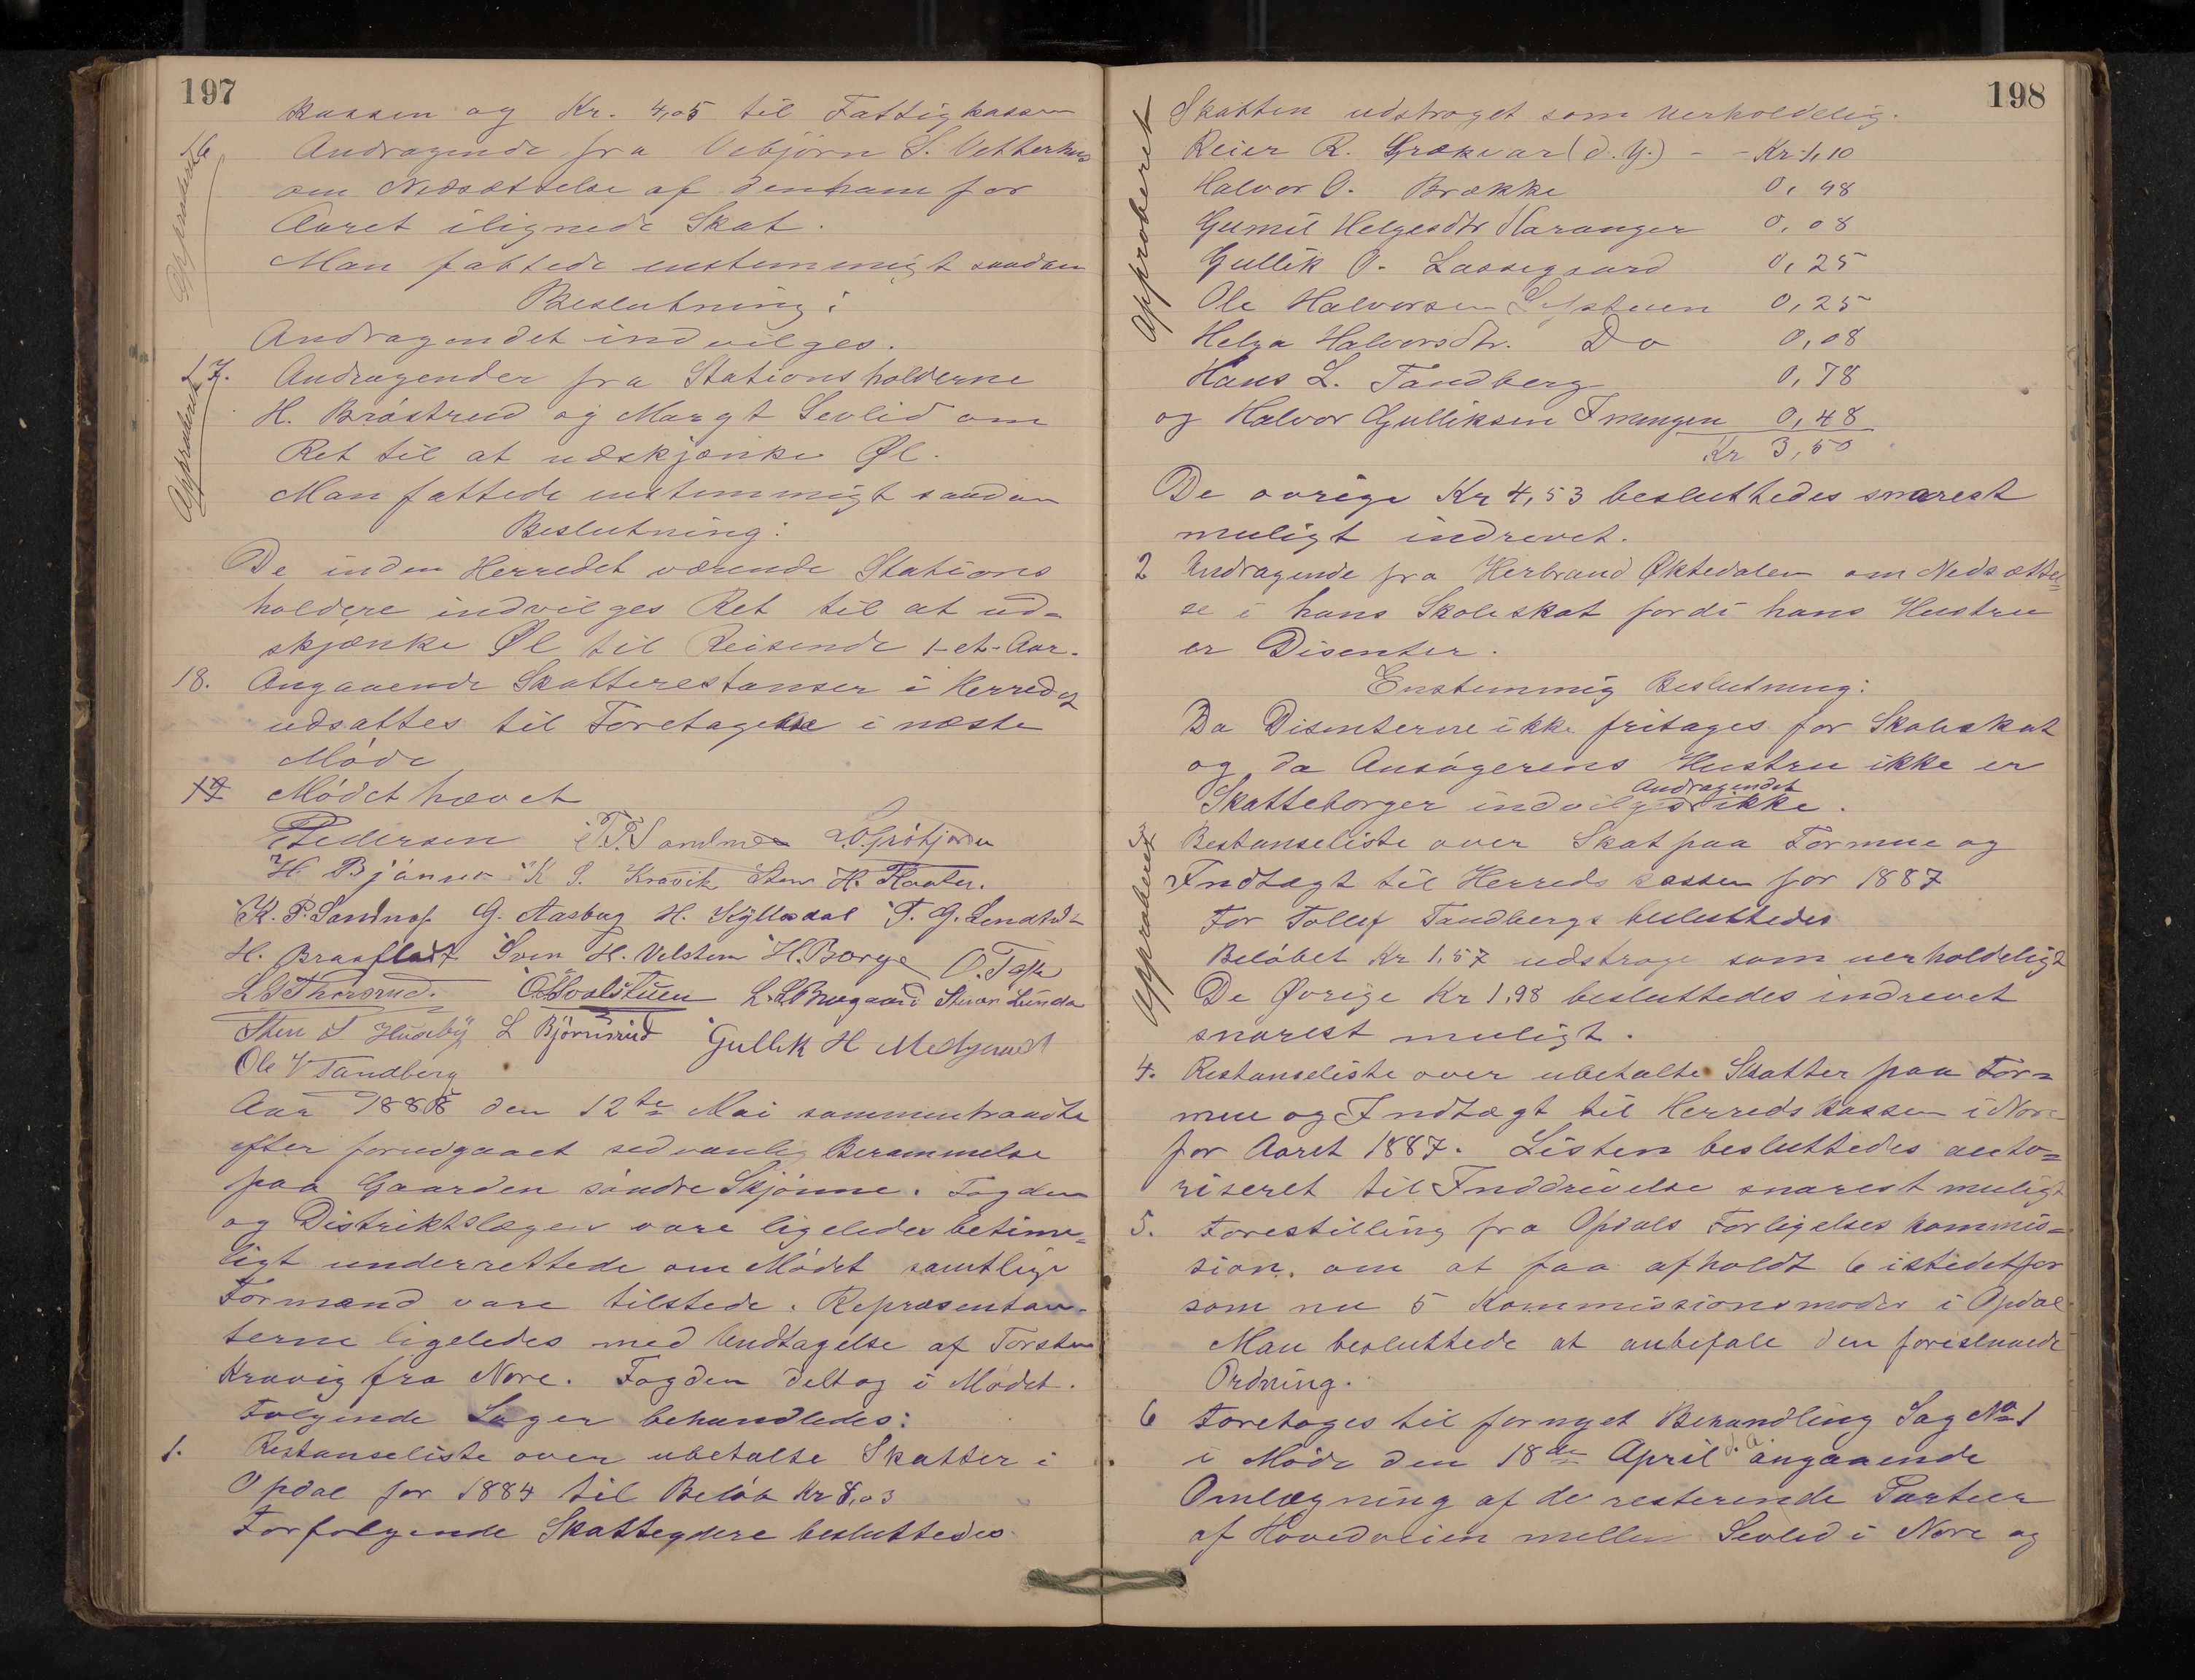 197
kassen og Kr. 4,05 til Fattigkassen
16 Andragende fra Vebjørn S. Vetterhus
om Nedsættelse af denham for
Aaret ilignede Skat.
Man fattede enstemmigt saadan
Beslutning:
Andragendet indvilges.
17. Andragender fra Stationsholderne
H. Bråstrud og Margt Sevlid om
Ret til at udskjænke Øl.
Approberet
Man fattede enstemmigt saadan
Beslutning:
De inden Herredet værende Stations
holdere indvilges Ret til at ud=
skjænke Øl til Reisende 1-et-Aar.
18. Angaaende Skatterestanser i Herredet
udsattes til Foretagelse i næste
Møde
19 Mødet hævet
Pedersen T.T. Sandnes
H. Bjånes K S. Kravik Sten H. Floaten.
K. P. Sandnes G. Aasberg H. Kyllesdal T. G.
H. Braafladt. Sven H. Velstem H. Borge O.
L G Thorsrud. L. L. Brugaard Steinar Lunde
Sten S Huseby L Bjørnsrud Gullik H
Ole V Tandberg
Aar 1888 den 12te Mai sammentraadte
efter forudgaaet sedvanlig Berammelse
paa Gaarden søndre Skjønne. Fogden
og Distriktslægen vare ligeledes betime=
ligt underrettede om Mødet samtlige
Formænd vare tilstede. Repræsentan-
terne ligeledes med Undtagelse af Torsten
Kravig fra Nore. Fogden deltog i Mødet.
Følgende Sager behandledes:
1. Restanseliste over ubetalte Skatter i
Opdal for 1884 til Beløb Kr 8,03
For følgende Skatteydere besluttedes
198
Approberet
Skatten udstrøget som uerholdelig.
Reier R. Grøkear (d. y.) - - Kr. 1,10
Halvor O. Brække 0,48
Gumil Helgesdtr Haranger 0,08
Gullik O. Lassegaard 0,25
Ole Halvorsen 0,25
Helga Halvorsdtr. Do 0,08
Hans L. Tandberg 0,78
og Halvor Gulliksen Imingen 0,48
Kr 3,50
De øvrige Kr 4,53 besluttedes snarest
muligt indrevet.
2 Andragende fra Herbrand Øktedalen om Nedsættel=
se i hans Skoleskat fordi hans Hustru
er Disenter.
Enstemmig Beslutning:
Da Disenterne ikke fritages for Skoleskat
og da Ansøgerens Hustru ikke er
Andragendet
Skatteborger indvilges ikke.
Approberet
3 Restanseliste over Skat paa Formue og
Indtægt til Herredskassen for 1887
For Tollef Tandbergs besluttedes
Beløbet Kr 1,57 udstrøge som uerholdeligt
De Øvrige Kr 1,98 besluttedes indrevet
snarest muligt.
4. Restanseliste over ubetalte Skatter paa For=
mue og Indtægt til Herredskassen i Nore
for Aaret 1887. Listen besluttedes auto=
riseret til Inddrivelse snarest muligt
5. Forestilling fra Opdals Forligelseskommis=
sion. om at faa afholdt 6 istedetfor
som nu 5 Kommissionsmøder i Opdal
Man besluttede at anbefale den foreslaaede
Ordning.
6 Foretoges til fornyet Behandling Sag No 1
i Møde den 18de April d. A. angaaende
Omlægning af de resterende Partier
af Hovedveien mellem Sevled i Nore og